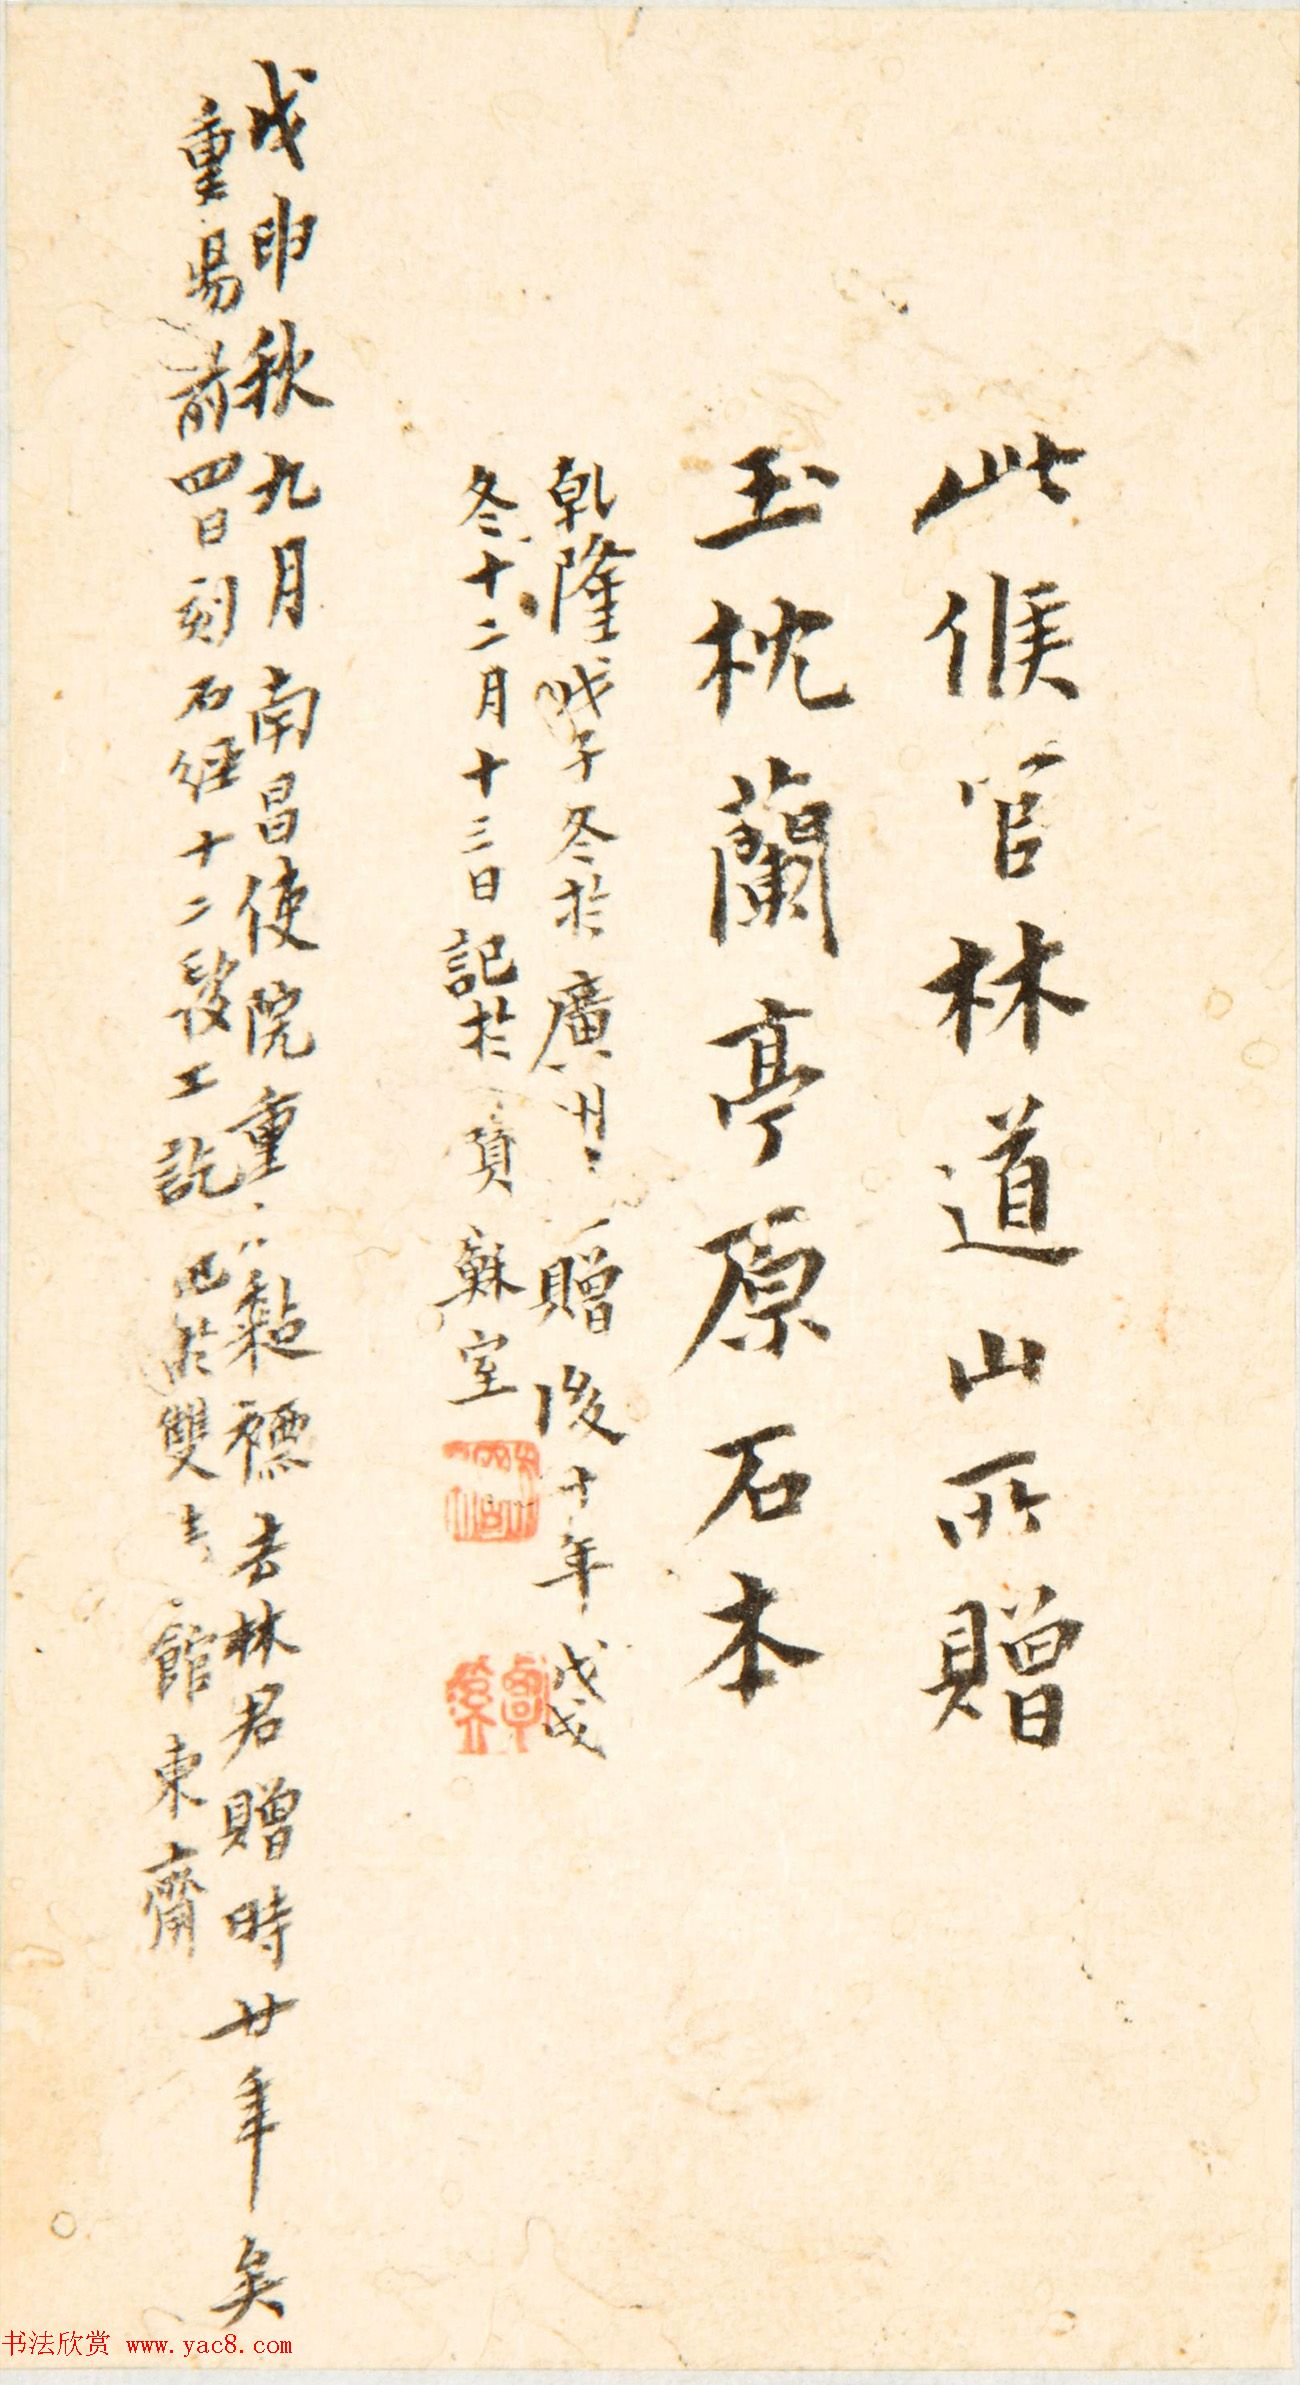 此侯官林道山所贈
玉枕蘭亭原石本
乾隆戊子冬於廣州贈後十年戊戌
冬十二月十三日記於寶蘇室
戊申秋九月南昌使院重黏褾去林君贈時廿年矣
重昜前四日刻石經十二段工訖記於雙 館東齋
书法欣赏 www.yac8.com